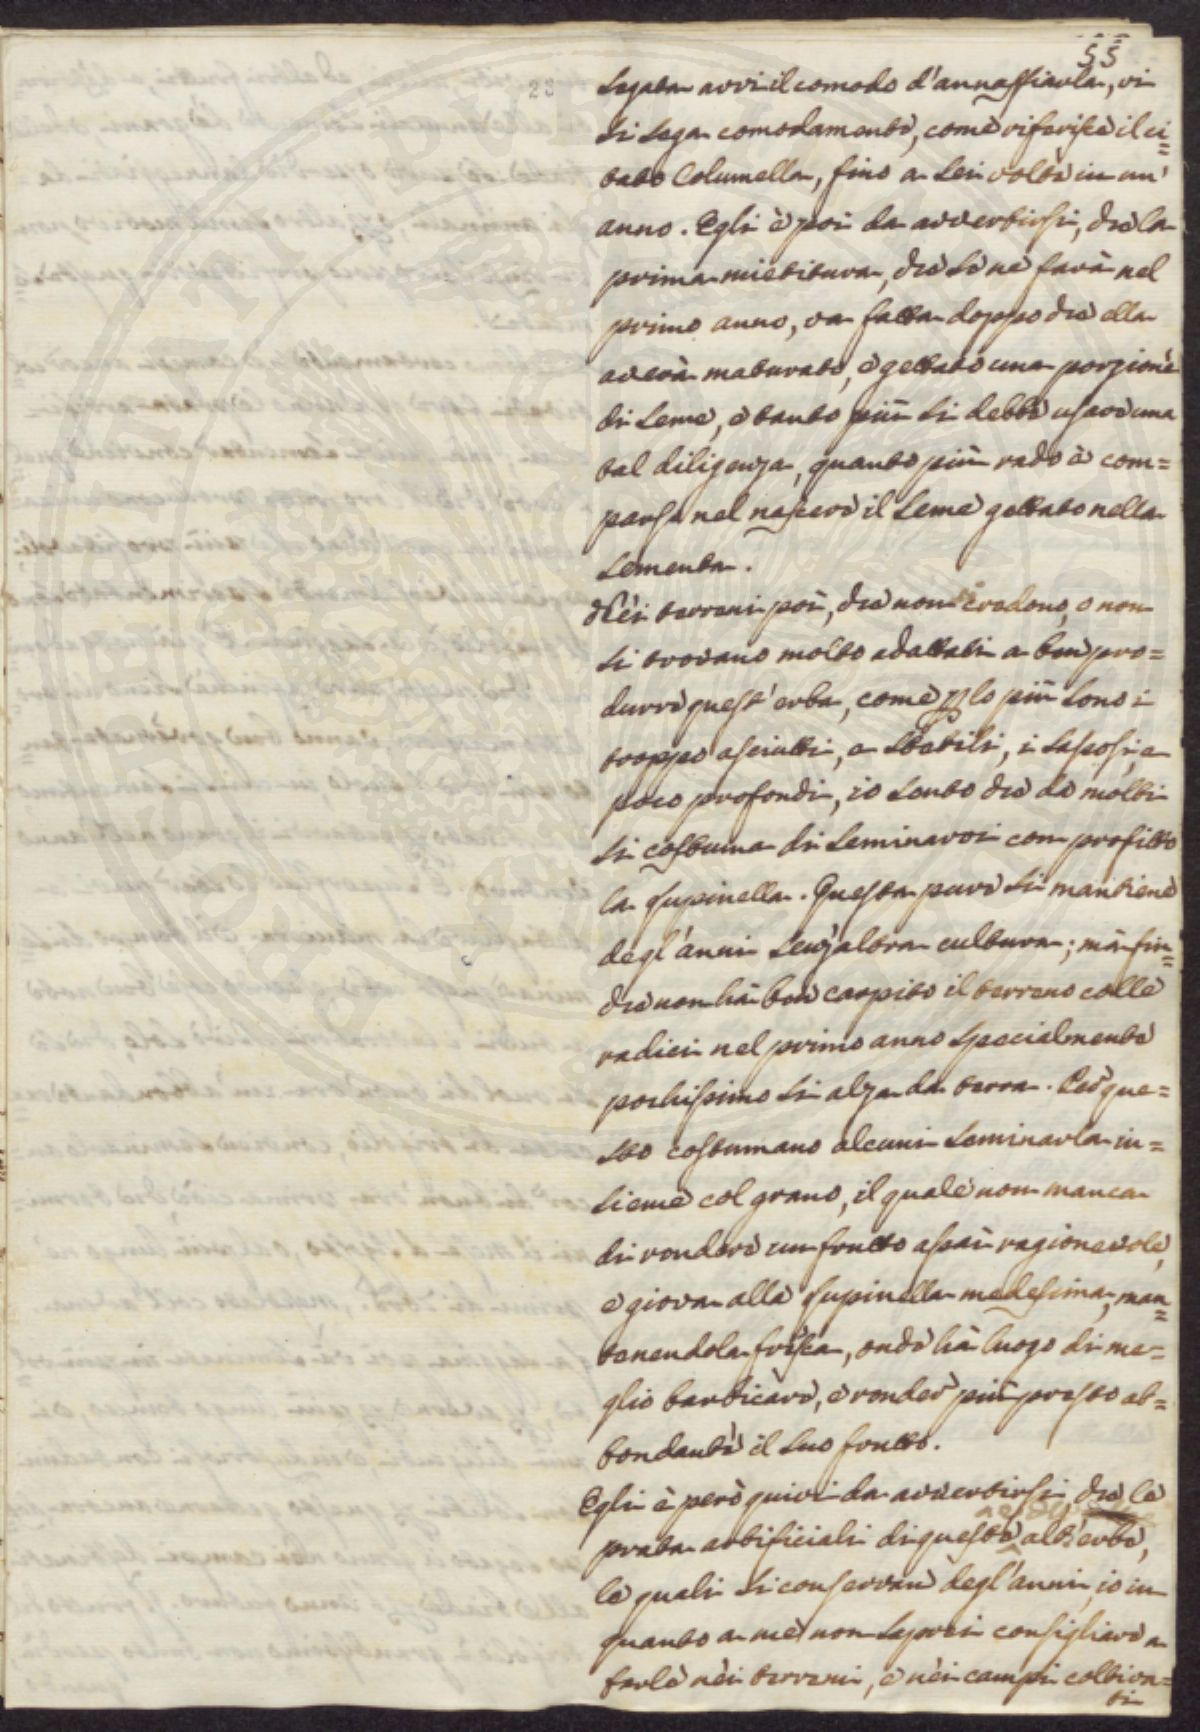 55
23
segata avvi il comodo d'annaffiarla, vi
si sega comodamente, come riferisce il ci=
tato Columella, fino a sei volte in un'
anno. Egli è poi da avvertirsi, che la
prima mietitura, che se ne farà nel
primo anno, va fatta doppo che ella
averà maturato, e gettato una porzione
di seme, e tanto più si debbe usare una
tal diligenza, quanto più rado è com=
parso nel nascere il seme gettato nella
sementa.
Nei terreni poi, che non credono, o non
si trovano molto adattati a ben pro=
durre quest'erba, come p lo più sono i
troppo asciutti, e sterili, i sassosi, e
poco profondi, io sento che da molti
si costuma di seminarvi con profitto
la lupinella. Questa pure si mantiene
degl'anni senz'altra cultura; mà fin=
che non hà ben carpito il terreno colle
radici nel primo anno specialmente
pochissimo si alza da terra. Per que=
sto costumano alcuni seminarla in=
sieme col grano, il quale non manca
di rendere un frutto assai ragionevole,
e giova alla lupinella medesima, man=
tenendola fresca, onde hà luogo di me=
glio barbicare, e render più presto ab=
bondante il suo frutto.
Egli è però quivi da avvertirsi, che le
prata artificiali di queste alt'erbe,
le quali si conservan degl'anni, io in
quanto a me non saprei consigliare a
farle nei terreni, e nei campi coltiva=
ti